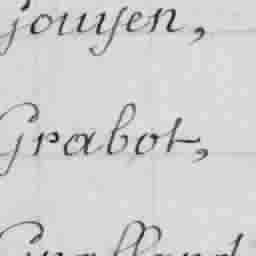 Gouyen,
Grabot,